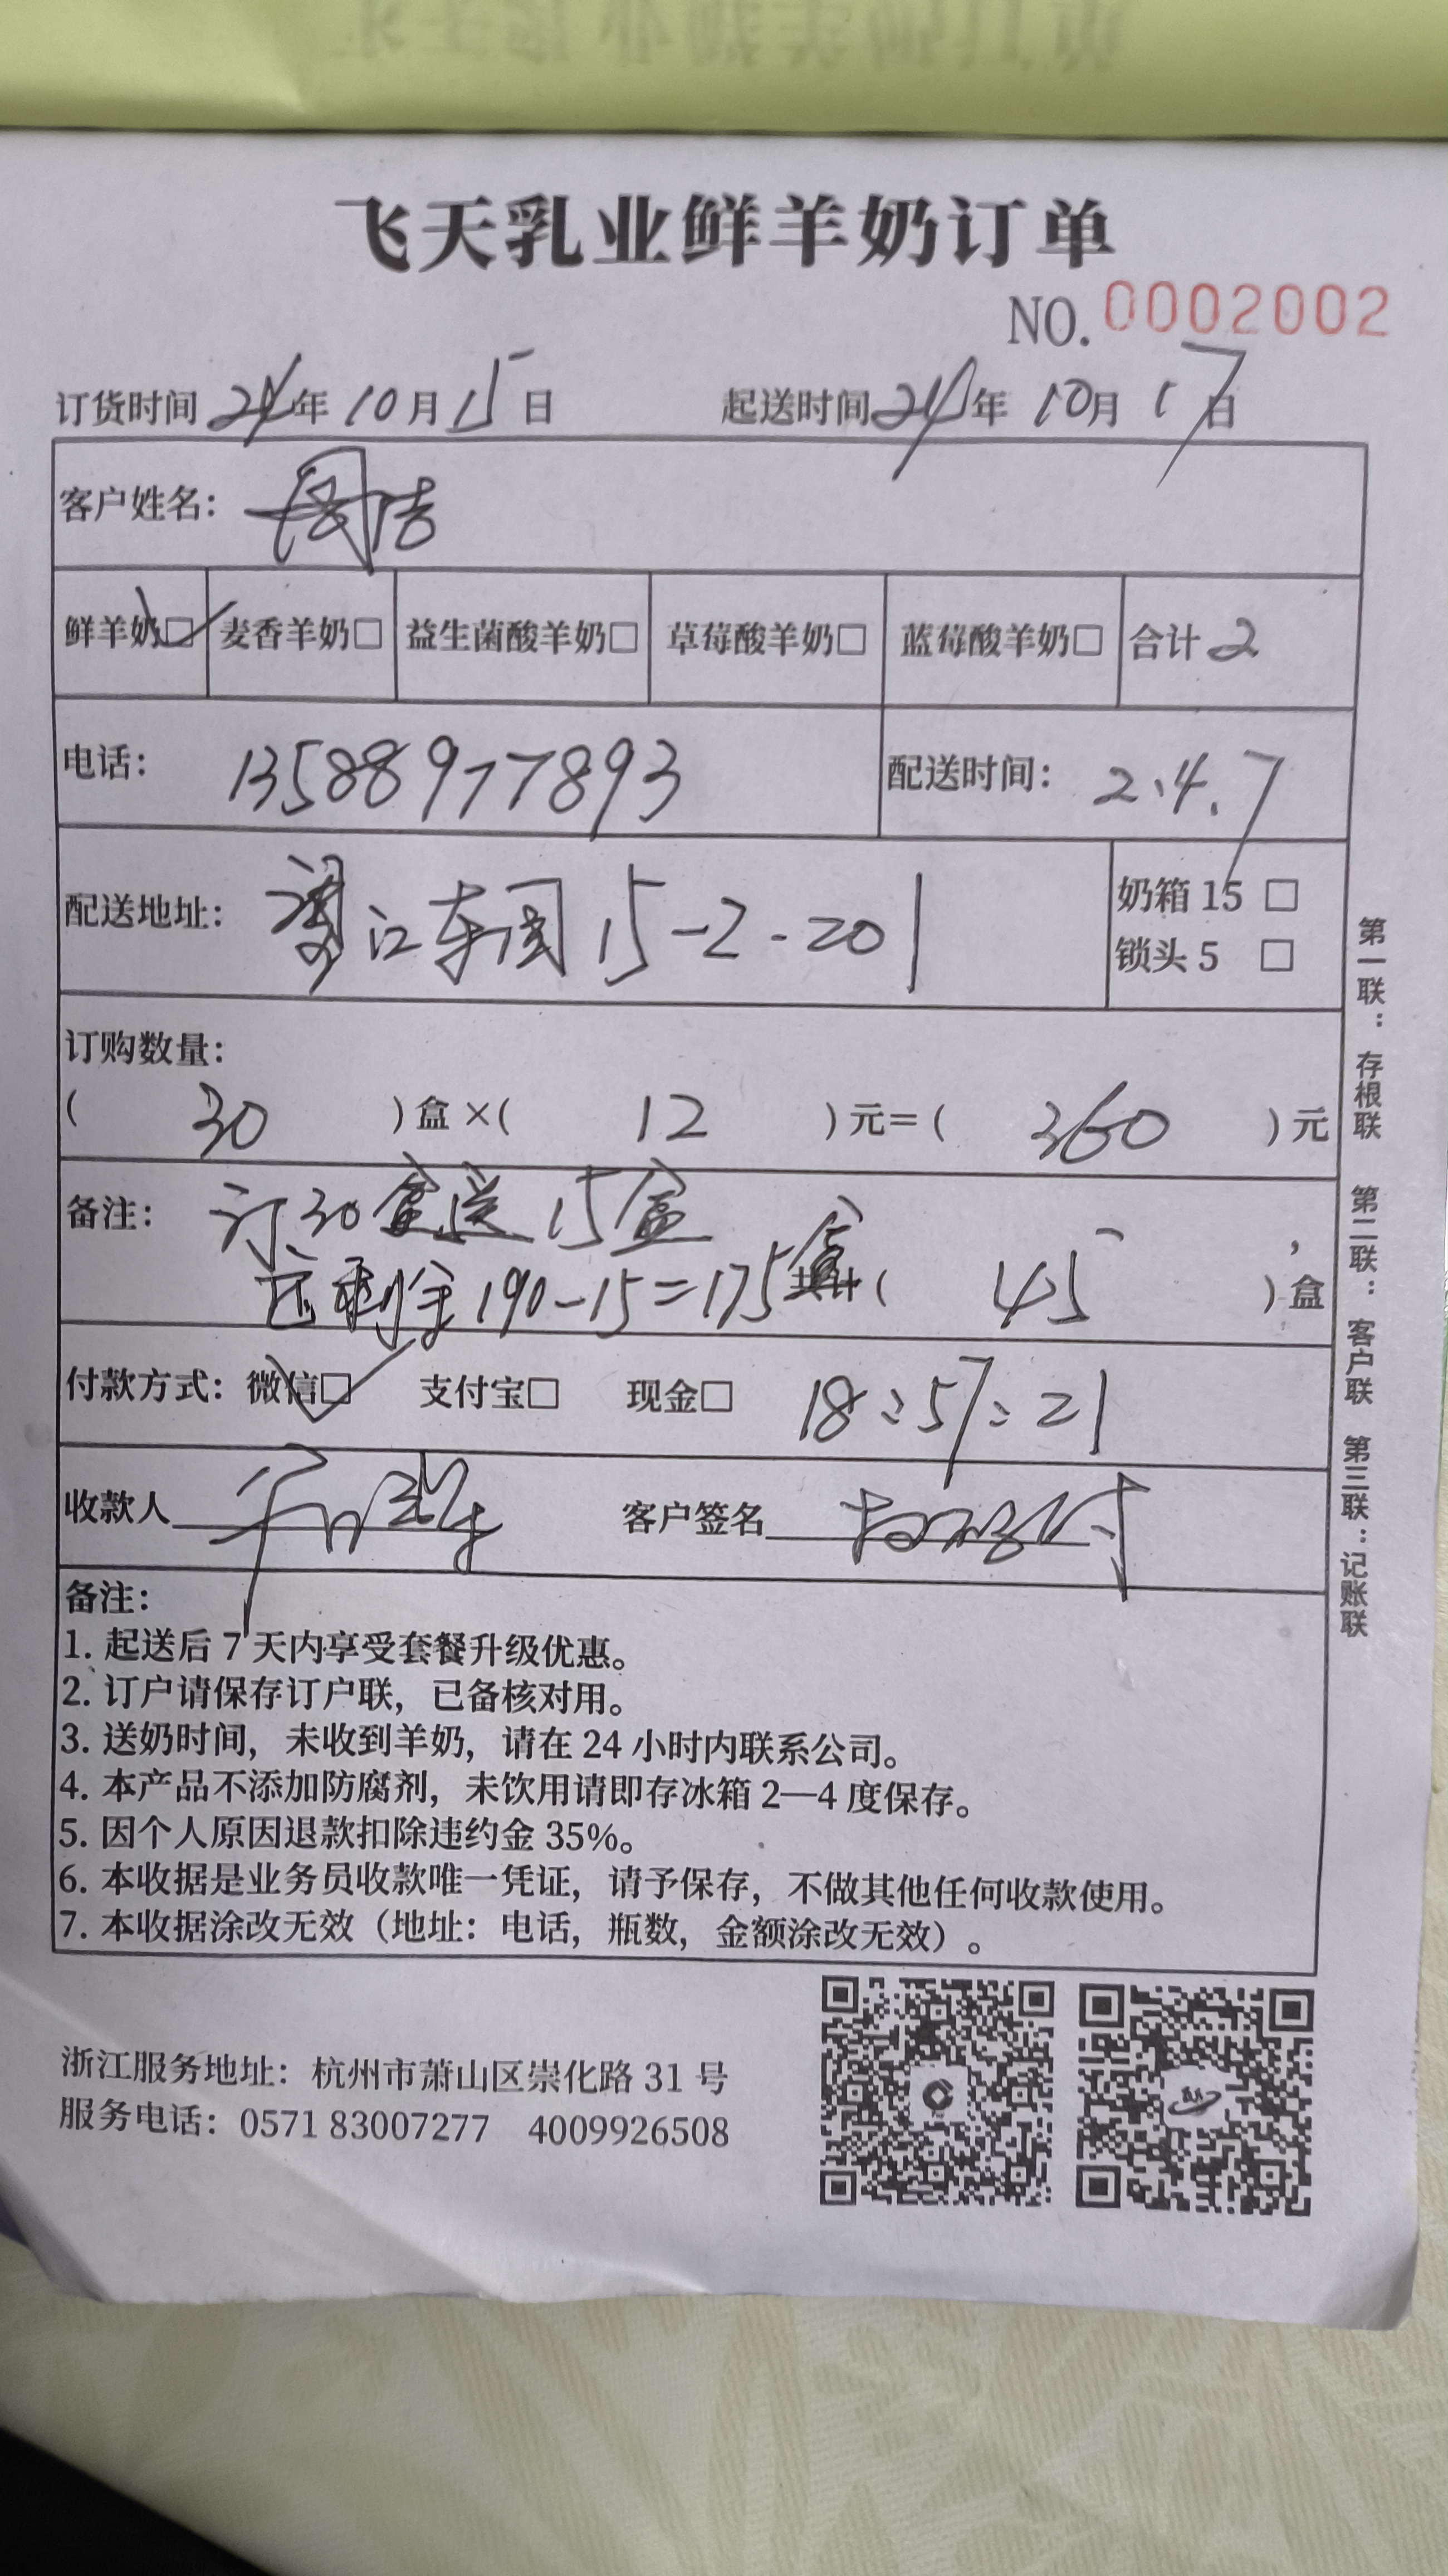 飞天乳业鲜羊奶订单
NO. 0002002
订货时间 24年 10月 15日 起送时间 24年 10月 17日
客户姓名: 周洁
鲜羊奶□ 麦香羊奶□ 益生菌酸羊奶□ 草莓酸羊奶□ 蓝莓酸羊奶□ 合计 2
电话: 13588977893 配送时间: 2.4.7
配送地址: 望江东园 15-2-201 奶箱 15 □
锁头 5 □
订购数量:
( 30 ) 盒 ×( 12 ) 元= ( 360 ) 元
备注: 订30盒送15盒 ,
还剩余190-15=175盒 共计 ( 45 ) 盒
付款方式: 微信□ 支付宝□ 现金□ 18:57:21
收款人 客户签名
备注:
1. 起送后 7 天内享受套餐升级优惠。
2. 订户请保存订户联, 已备核对用。
3. 送奶时间, 未收到羊奶, 请在 24 小时内联系公司。
4. 本产品不添加防腐剂, 未饮用请即存冰箱 2—4 度保存。
5. 因个人原因退款扣除违约金 35%。
6. 本收据是业务员收款唯一凭证, 请予保存, 不做其他任何收款使用。
7. 本收据涂改无效 (地址: 电话, 瓶数, 金额涂改无效) 。
第一联: 存根联 第二联: 客户联 第三联: 记账联
浙江服务地址: 杭州市萧山区崇化路 31 号
服务电话: 0571 83007277 4009926508